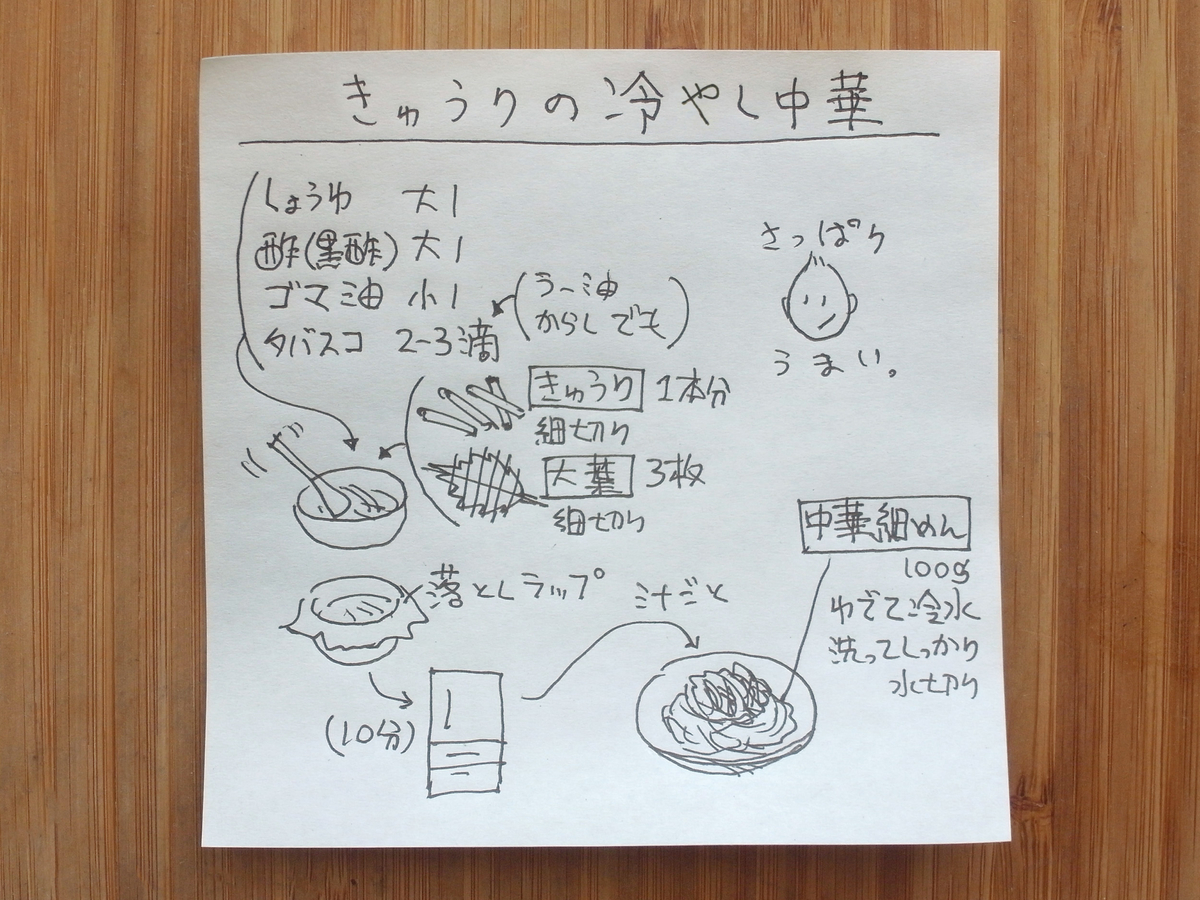 きゅうりの冷やし中華
しょうゆ 大1
酢(黒酢) 大1
ゴマ油 小1
タバスコ 2-3滴
(ラー油
からしでも)
さっぱり
うまい。
きゅうり 1本分
細切り
大葉 3枚
細切り
落としラップ
(10分)
汁ごと
中華細めん
100g
ゆでて冷水
洗ってしっかり
水切り